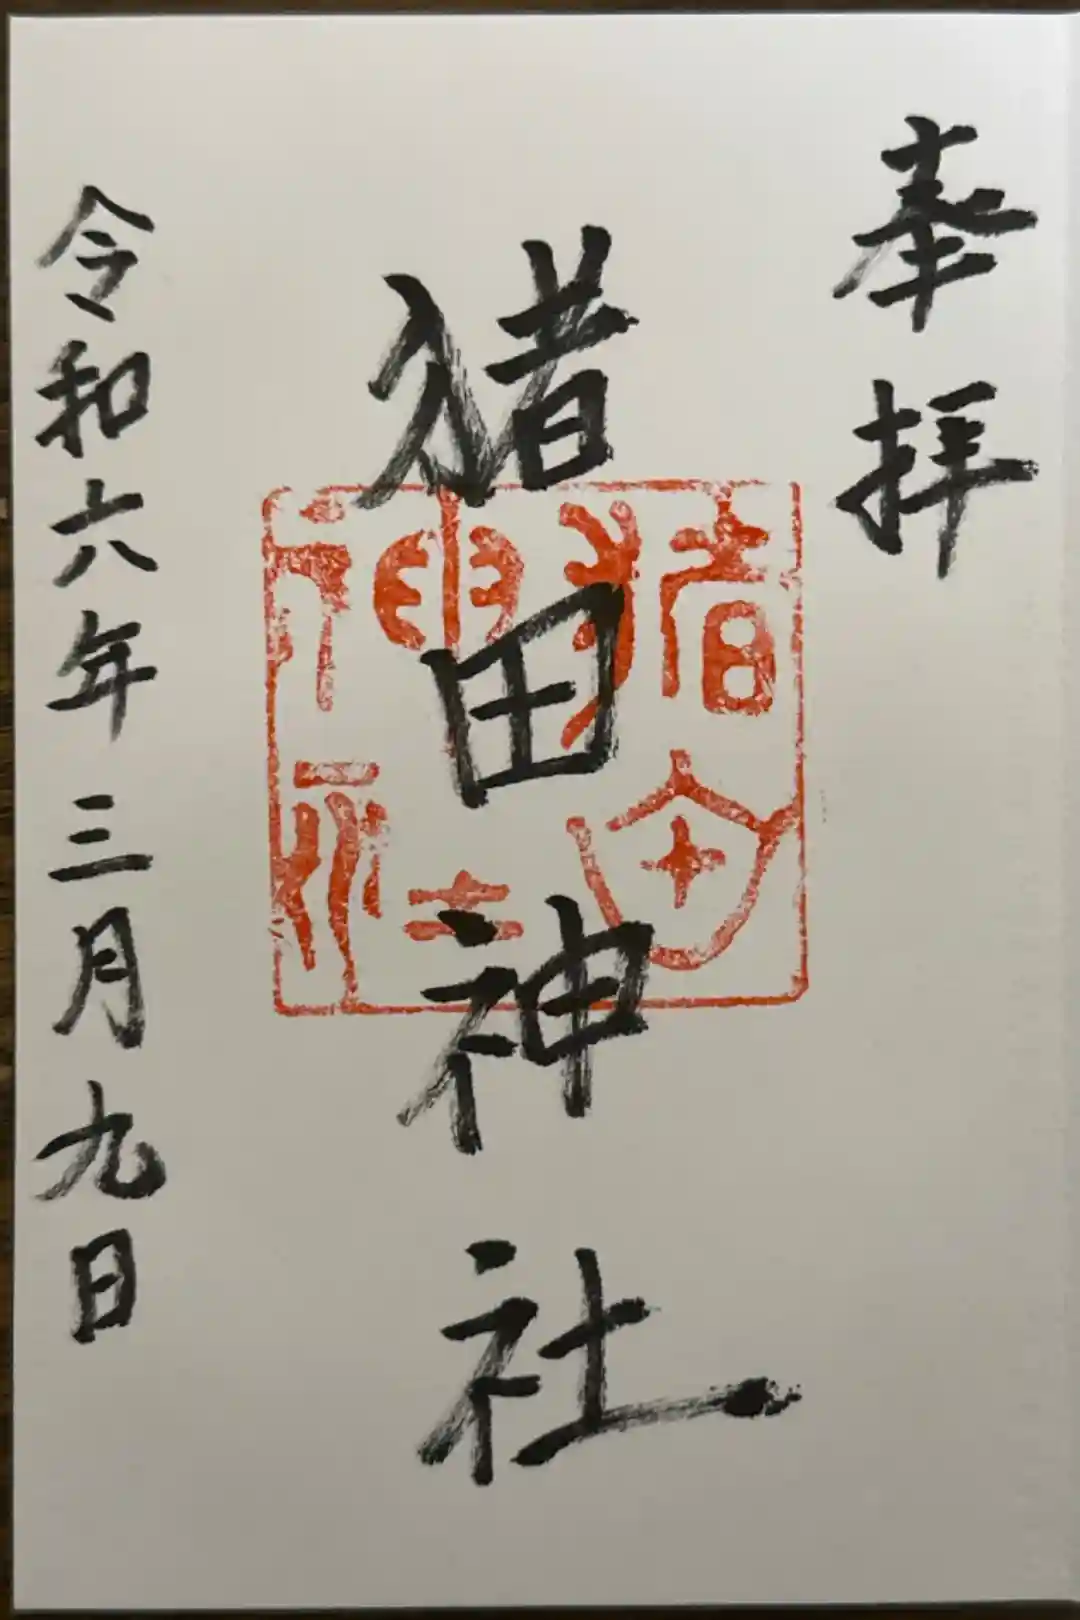 奉拝
猪田神社
猪田神社
令和六年三月九日